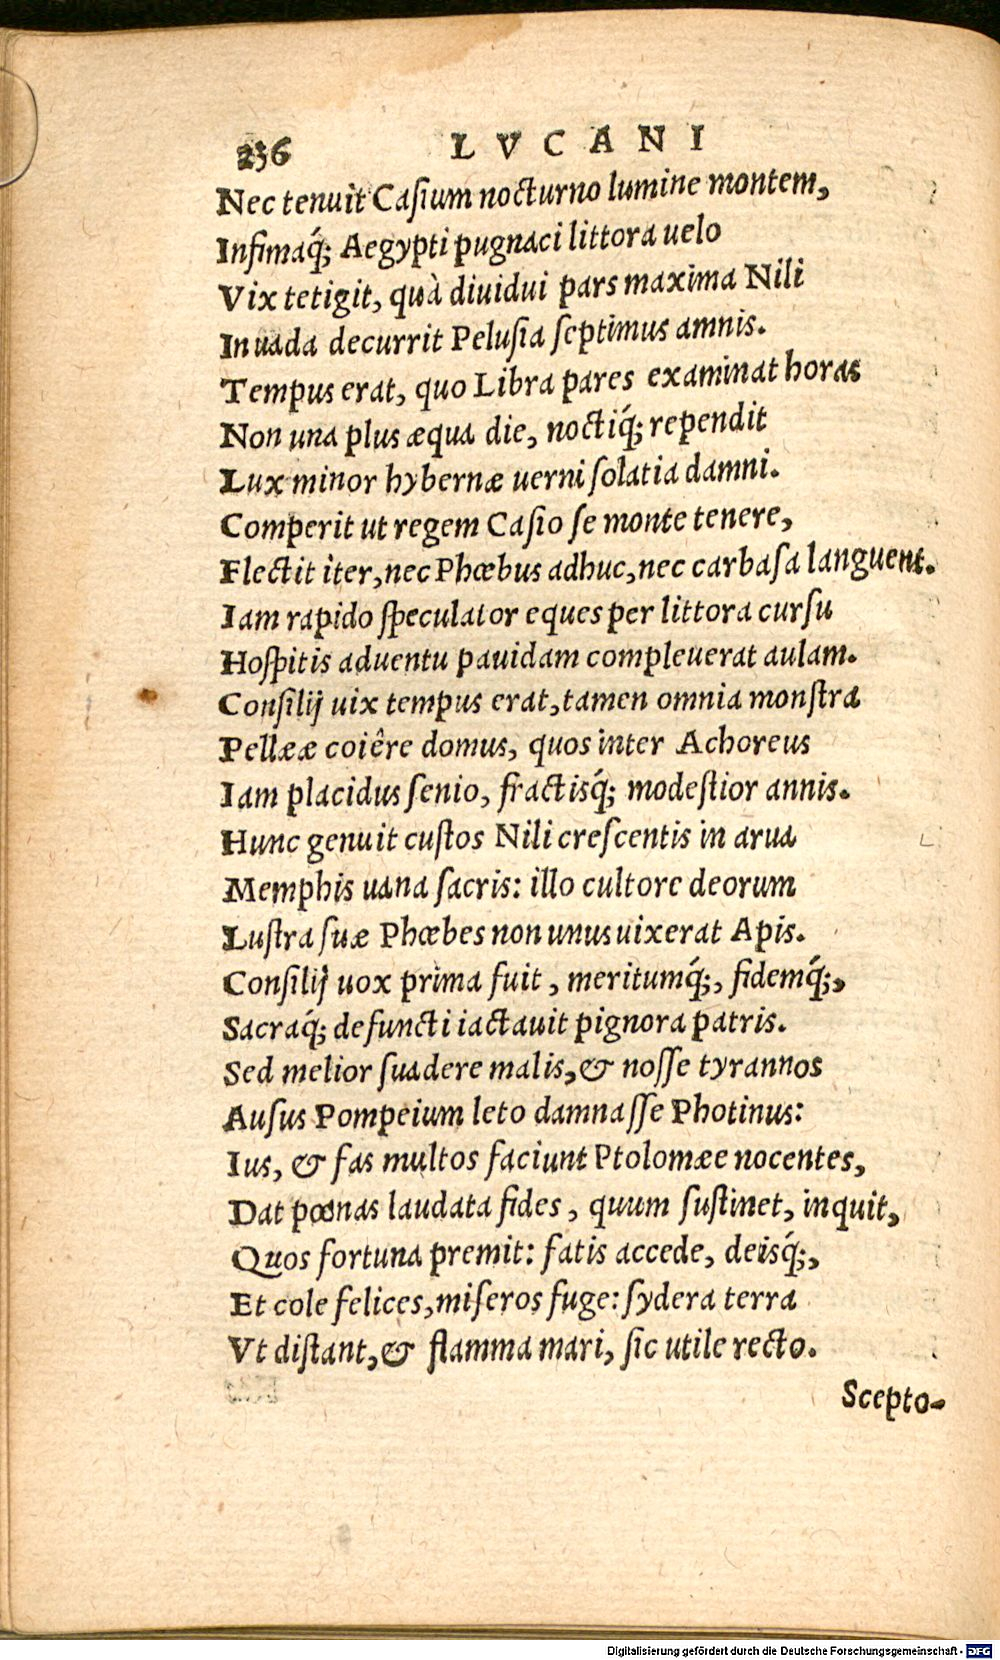 236 LVCANI
Nec tenuit Caſium nocturno lumine montem,
Infimaq́; Aegypti pugnaci littora uelo
Vix tetigit, quà diuidui pars maxima Nili
In uada decurrit Peluſia ſeptimus amnis.
Tempus erat, quo Libra pares examinat horas
Non una plus æqua die, noctiq́; rependit
Lux minor hybernæ uerni ſolatia damni.
Comperit ut regem Caſio ſe monte tenere,
Flectit iter, nec Phœbus adhuc, nec carbaſa languent.
Iam rapido ſpeculator eques per littora curſu
Hoſpitis aduentu pauidam compleuerat aulam.
Conſilij uix tempus erat, tamen omnia monſtra
Pellææ coiêre domus, quos inter Achoreus
Iam placidus ſenio, fractisq́; modeſtior annis.
Hunc genuit cuſtos Nili creſcentis in arua
Memphis uana ſacris: illo cultore deorum
Luſtra ſuæ Phœbes non unus uixerat Apis.
Conſilij uox prima fuit, meritumq́;, fidemq́;,
Sacraq́; defuncti iactauit pignora patris.
Sed melior ſuadere malis, & noſſe tyrannos
Auſus Pompeium leto damnaſſe Photinus:
Ius, & fas multos faciunt Ptolomæe nocentes,
Dat pœnas laudata fides, quum ſuſtinet, inquit,
Quos fortuna premit: fatis accede, deisq́;,
Et cole felices, miſeros fuge: ſydera terra
Vt diſtant, & flamma mari, ſic utile recto.
Scepto-
Digitalisierung gefördert durch die Deutsche Forschungsgemeinschaft - DFG